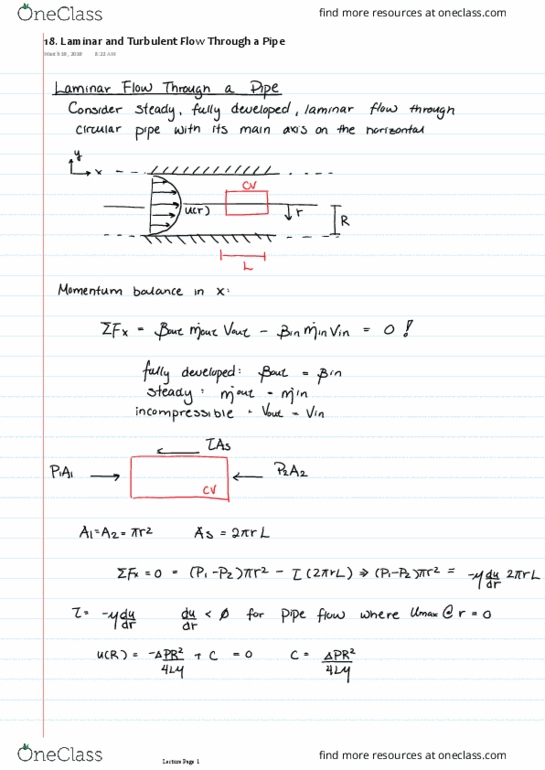 OneClass
find more resources at oneclass.com
18. Laminar and Turbulent Flow Through a Pipe
8:22 AM
Laminar Flow Through a Pipe
Consider steady, fully developed, laminar flow through
circular pipe with its main axis on the horizontal
y
x
CV
u(r)
r
R
L
Momentum balance in x:
ΣFx = βout ṁout Vout - βin ṁin Vin = 0!
fully developed: βout = βin
steady: ṁout = ṁin
incompressible = Vout = Vin
τAs
P1A1
P2A2
CV
A1=A2= πr² As = 2πrL
ΣFx = 0 = (P1-P2)πr² - τ(2πrL) ⇒ (P1-P2)πr² = -μ du/dr 2πrL
τ = -μ du/dr du/dr < 0 for pipe flow where Umax @ r = 0
u(R) = -ΔPR²/4Lμ + C = 0 C = ΔPR²/4Lμ
OneClass
Lecture Page 1
find more resources at oneclass.com